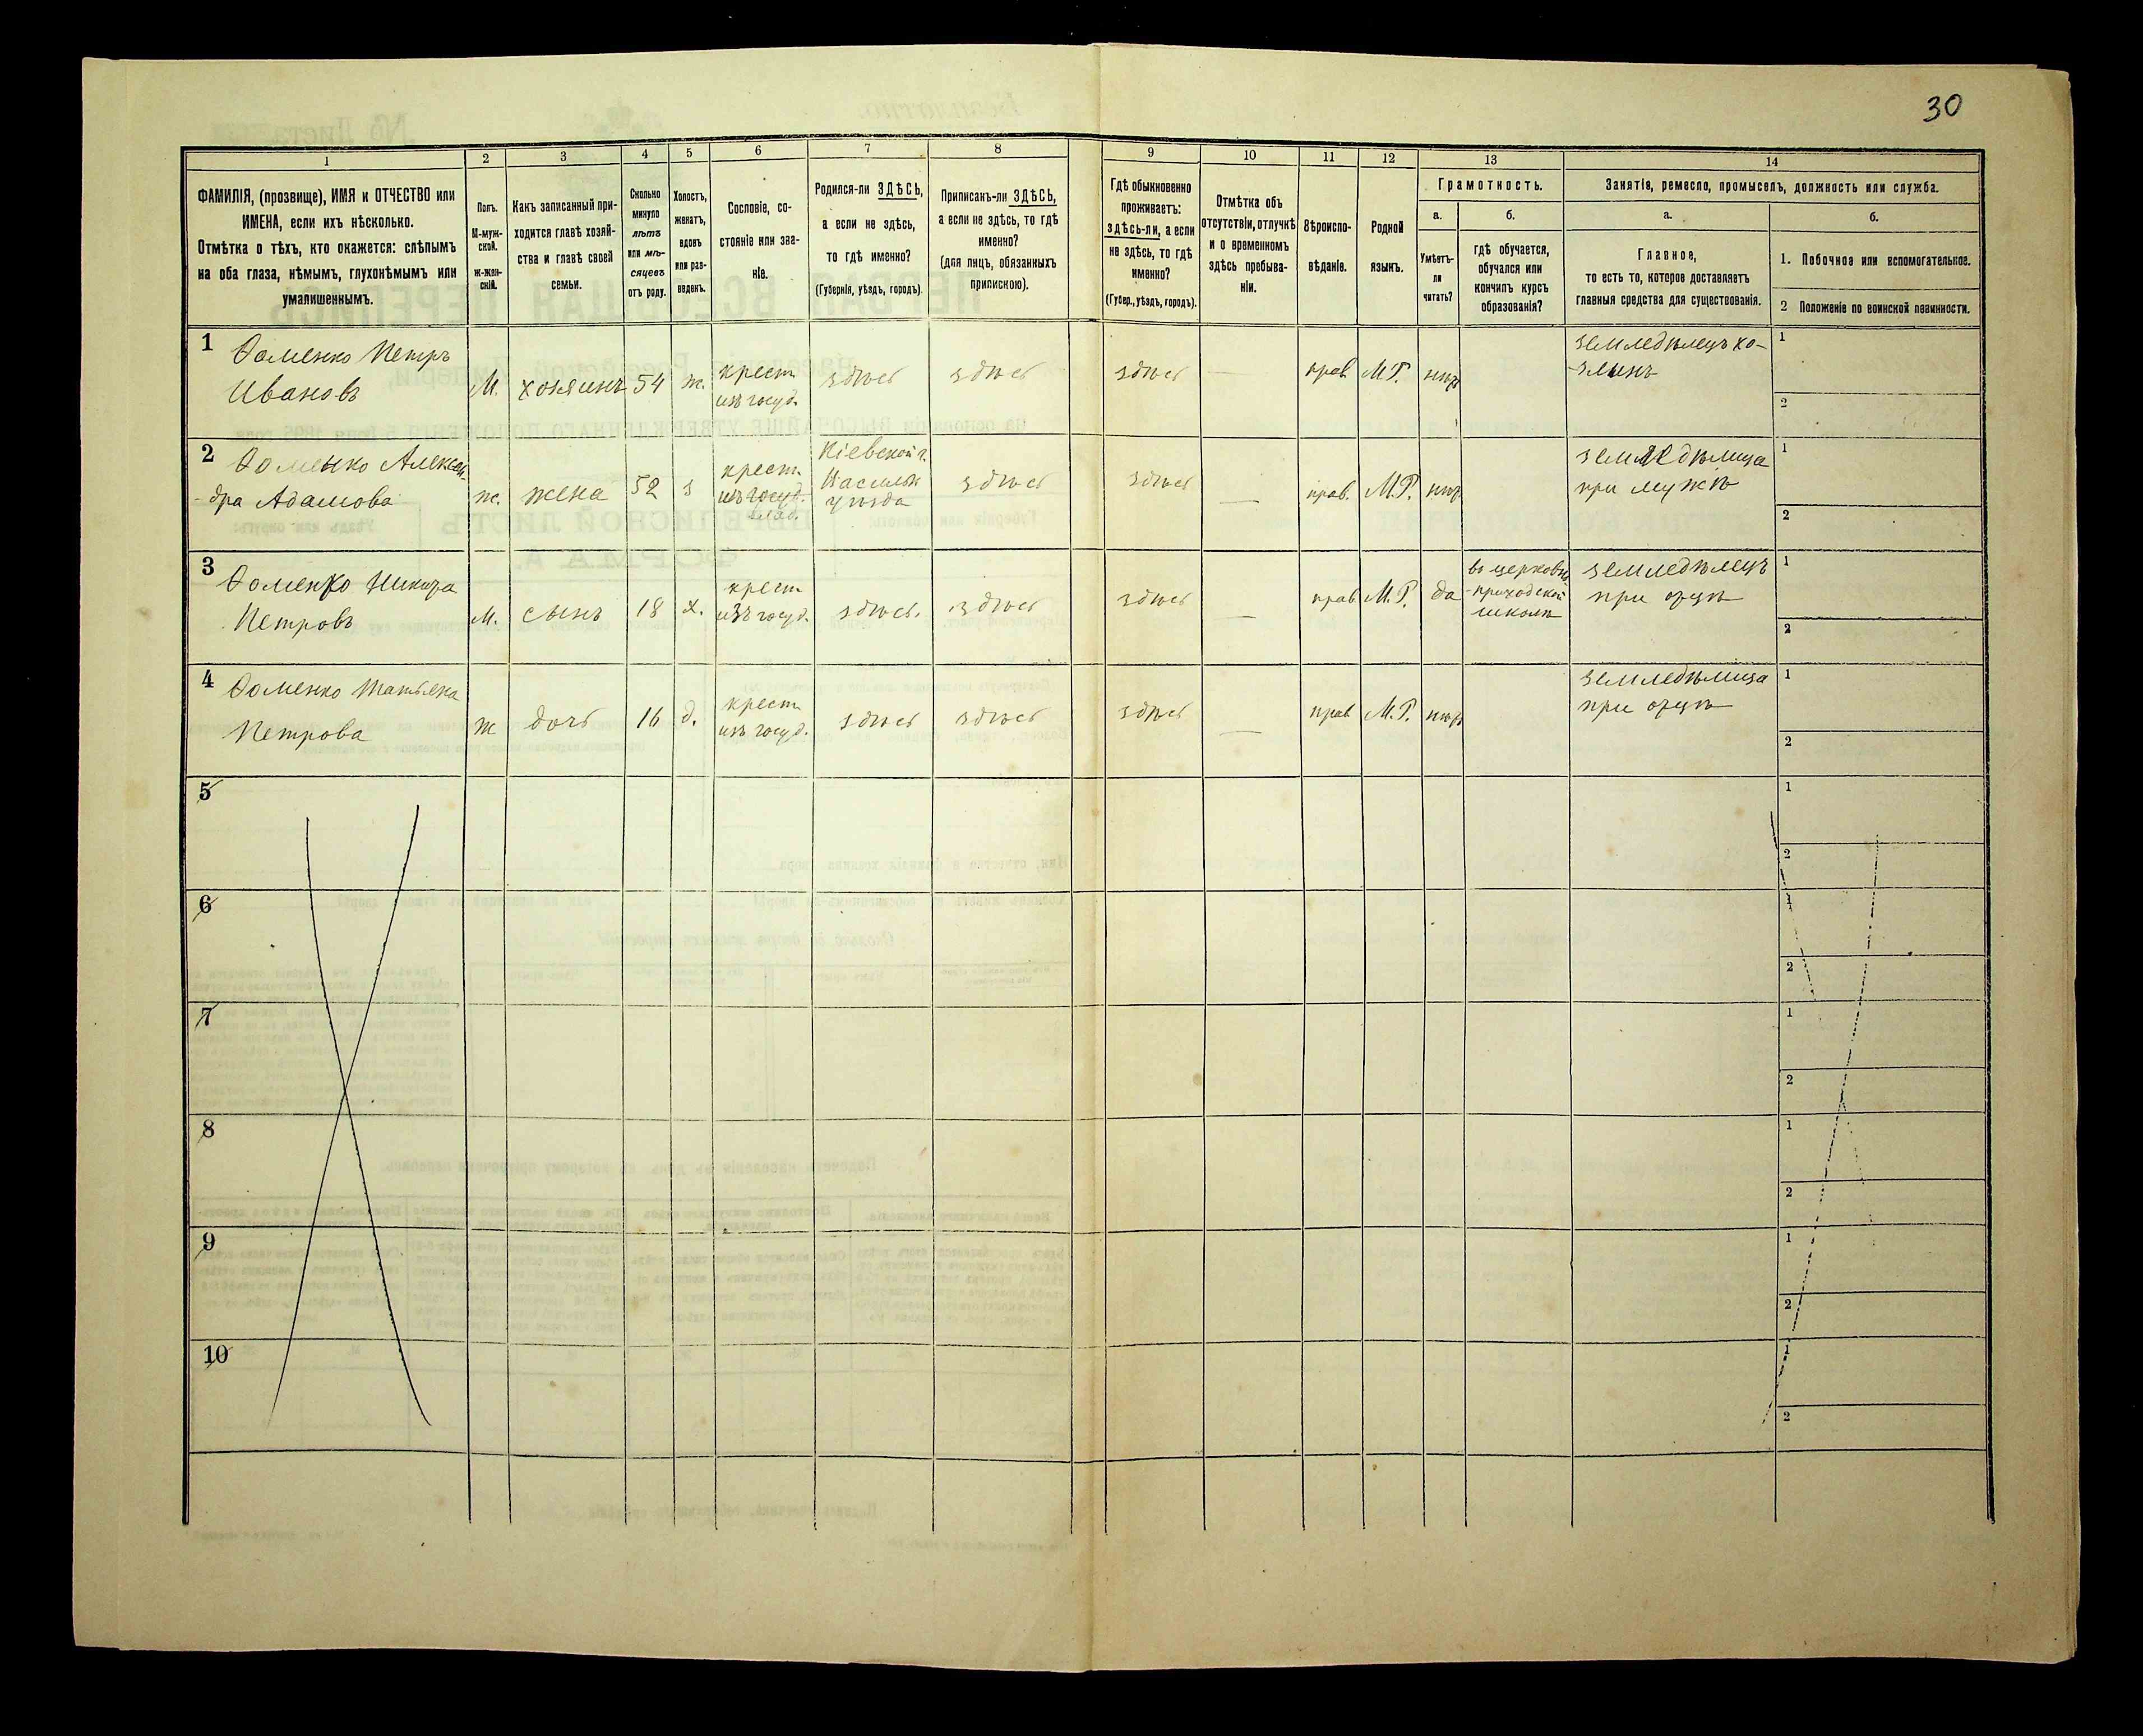 30
1
2
3
4
5
6
7
8
9
10
11
12
13
14
ФАМИЛІЯ, (прозвище), ИМЯ и ОТЧЕСТВО или
ИМЕНА, если ихъ нѣсколько.
Отмѣтка о тѣхъ, кто окажется: слѣпымъ
на оба глаза, нѣмымъ, глухонѣмымъ или
умалишеннымъ.
Полъ.
М-муж-
ской.
ж-жен-
скій.
Какъ записанный при-
ходится главѣ хозяй-
ства и главѣ своей
семьи.
Сколько
минуло
лѣтъ
или мѣ-
сяцевъ
отъ роду.
Холостъ,
женатъ,
вдовъ
или раз-
веденъ.
Сословіе, со-
стояніе или зва-
ніе.
Родился-ли ЗДѢСЬ,
а если не здѣсь,
то гдѣ именно?
(Губернія, уѣздъ, городъ).
Приписанъ-ли ЗДѢСЬ,
а если не здѣсь, то гдѣ
именно?
(для лицъ, обязанныхъ
припискою).
Гдѣ обыкновенно
проживаетъ:
здѣсь-ли, а если
не здѣсь, то гдѣ
именно?
(Губер., уѣздъ, городъ).
Отмѣтка объ
отсутствіи, отлучкѣ
и о временномъ
здѣсь пребыва-
ніи.
Вѣроиспо-
вѣданіе.
Родной
языкъ.
Грамотность.
а.
Умѣетъ-
ли
читать?
б.
гдѣ обучается,
обучался или
кончилъ курсъ
образованія?
Занятіе, ремесло, промыселъ, должность или служба.
а.
Главное,
то есть то, которое доставляетъ
главныя средства для существованія.
б.
1. Побочное или вспомогательное.
2 Положеніе по воинской повинности.
1
Ѳоменко Петръ
Ивановъ
М.
хозяинъ
54
ж.
крест
изъ госуд.
здѣсь
здѣсь
здѣсь
—
прав
М.Р.
нѣтъ
земледѣлецъ хо-
зяинъ
1
2
2
Ѳоменко Алексан-
дра Адамова
ж.
жена
52
з
крест
изъ госуд.
влад.
Кіевской г.
Васильк
уѣзда
здѣсь
здѣсь
—
прав.
М.Р.
нѣтъ
земледѣлица
при мужѣ
1
2
3
Ѳоменко Никита
Петровъ
М.
сынъ
18
х.
крест
изъ госуд.
здѣсь.
здѣсь
здѣсь
—
прав
М.Р.
да
въ церковно
-приходской
школѣ
земледѣлецъ
при отцѣ
1
2
4
Ѳоменко Татьяна
Петрова
ж
дочь
16
д.
крест
изъ госуд.
здѣсь
здѣсь
здѣсь
—
прав
М.Р.
нѣтъ
земледѣлица
при отцѣ
1
2
5
1
2
6
1
2
7
1
2
8
1
2
9
1
2
10
1
2